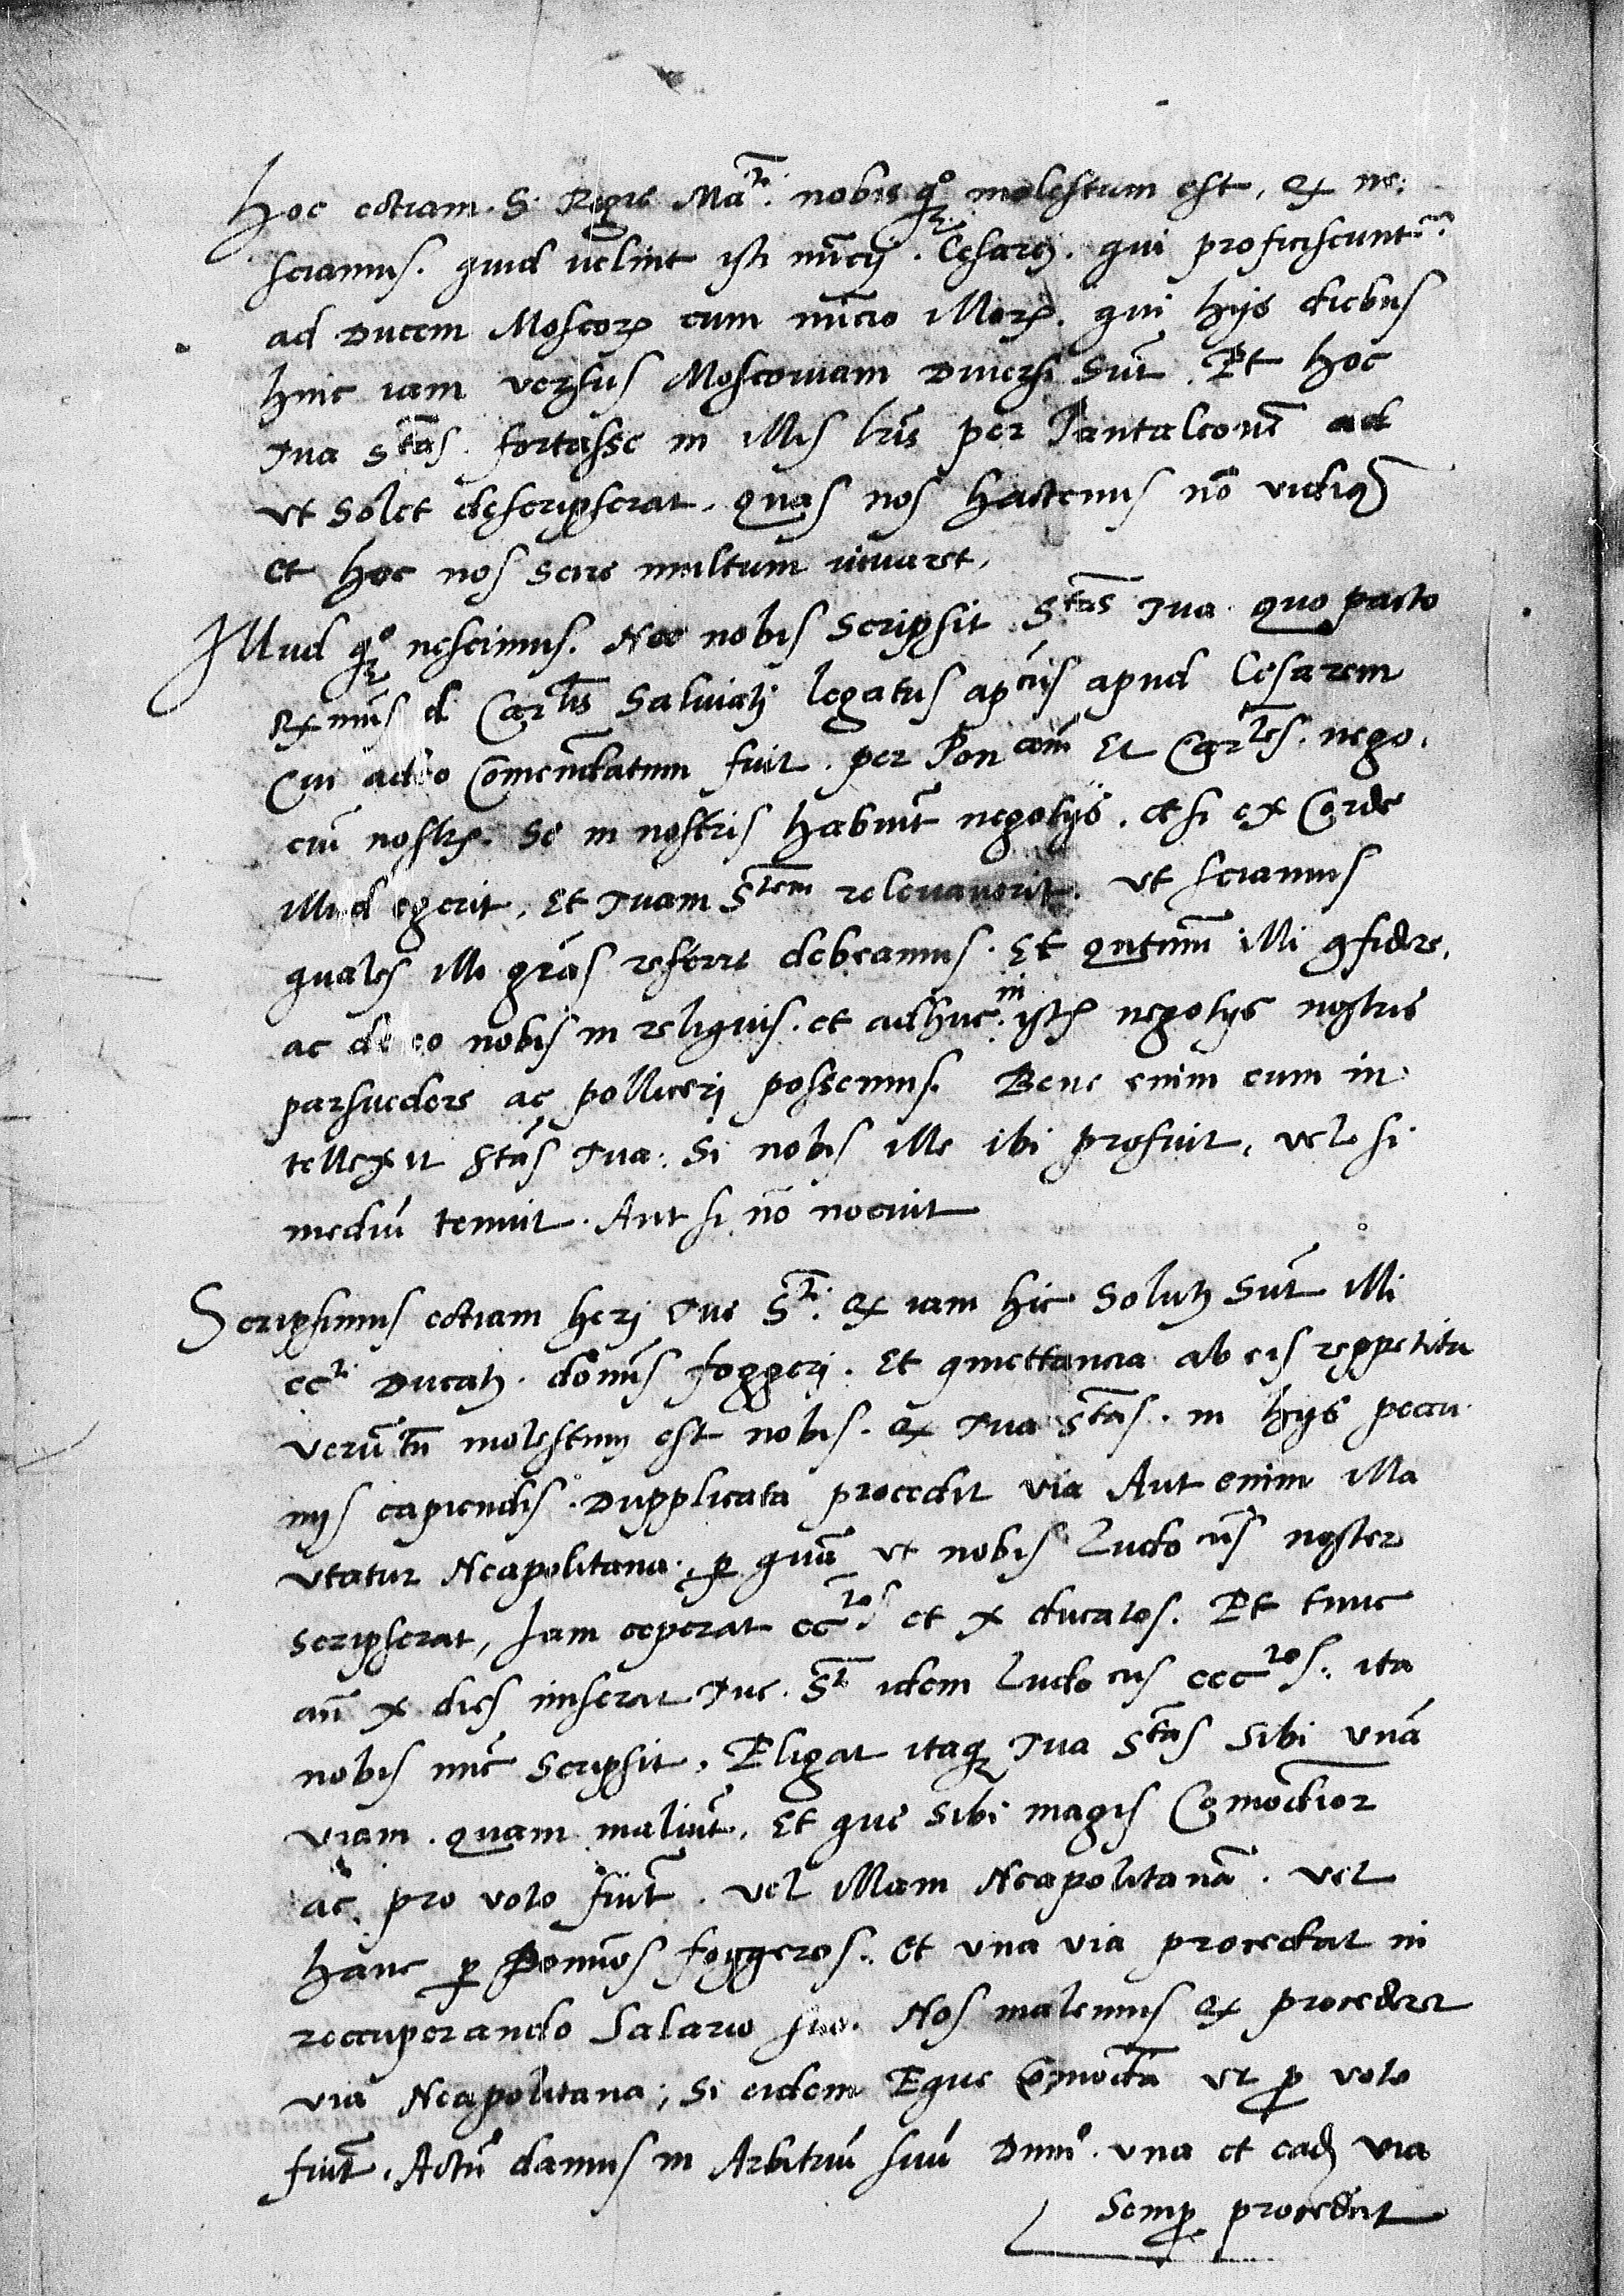 Hoc ectiam. S. Regie Ma^ti. nobisq^o molestum est, q nesciamus. quid uelint isti nu̅cij. Cesarej. qui proficiscunt^r
ad Ducem Moscor̅ cum nu̅cio illor̅. qui hijs diebus
hinc iam versus Moscouiam Diuersi su̅t. Et hoc
Tua S^tas. fortasse in illis lr̅is per Pantaleone̅ ad
vt solet descripserat. quas nos hactenus no̅ vidimus
et hoc nos scire multum iuuaret.
Illud q^o nescimus. Nec nobis scripsit S^tas Tua. quo pacto
R̅mus d Car^lis Saluiatj legatus ap^cus apud Cesarem
Cui adeo Come̅ndatum fuit. per Pon^cem Et Car^les. nego.
ciu̅ nostr̅. Se in nostris habuit negotijs. et si ex Corde
illud egerit. Et Tuam S^tem releuauerit. vt sciamus
quales illi gra̅s referre debeamus. Et qntum̅ illi 9fidere.
ac de eo nobis in reliquis. et adhuc. in istis negotijs nostris
parsuedere ac pollicerj possemus. Bene enim eum in.
tellexit Stas Tua. Si nobis ille ibi profuit, vel si
mediu̅ tenuit. Aut si no̅ nocuit
Scripsimus ectiam herj Tue S^ti. q iam hic Solutj Su̅t illi
cc^ti Ducatj. dominis foggerj. Et quiettancia ab eis reppetita
veru̅tn̅ molestum est nobis. q Tua S^tas. in hijs peccu
nijs capiendis. Dupplicata procedit via Aut enim illa
vtatur Neapolitana. p̲ qua̅ vt nobis Ludo^cus noster
scripserat, Iam ceperat cc^tos et x ducatos. Et tunc
an̅ x dies miserat Tue. S^ti idem Ludo^cus ccc^tos. ita
nobis nu̅c scripsit. Eligat itaq̲ Tua S^tas Sibi vna̅
viam. quam maliu̅t. Et que Sibi magis Co̅modior
ac. pro voto fuit. vel illam Neapolitana̅. vel
hanc p̲ Dominos foggeros. et vna via procedat in
reccuperando Salario suo. Nos malemus q procederet
via Neapolitana; Si eidem Eque Co̅moda vt p̲ voto
fuit. Actu̅ damus in Arbitriu̅ suu̅ Dum^o. vna et ead̅ via
Semp̲ procedat